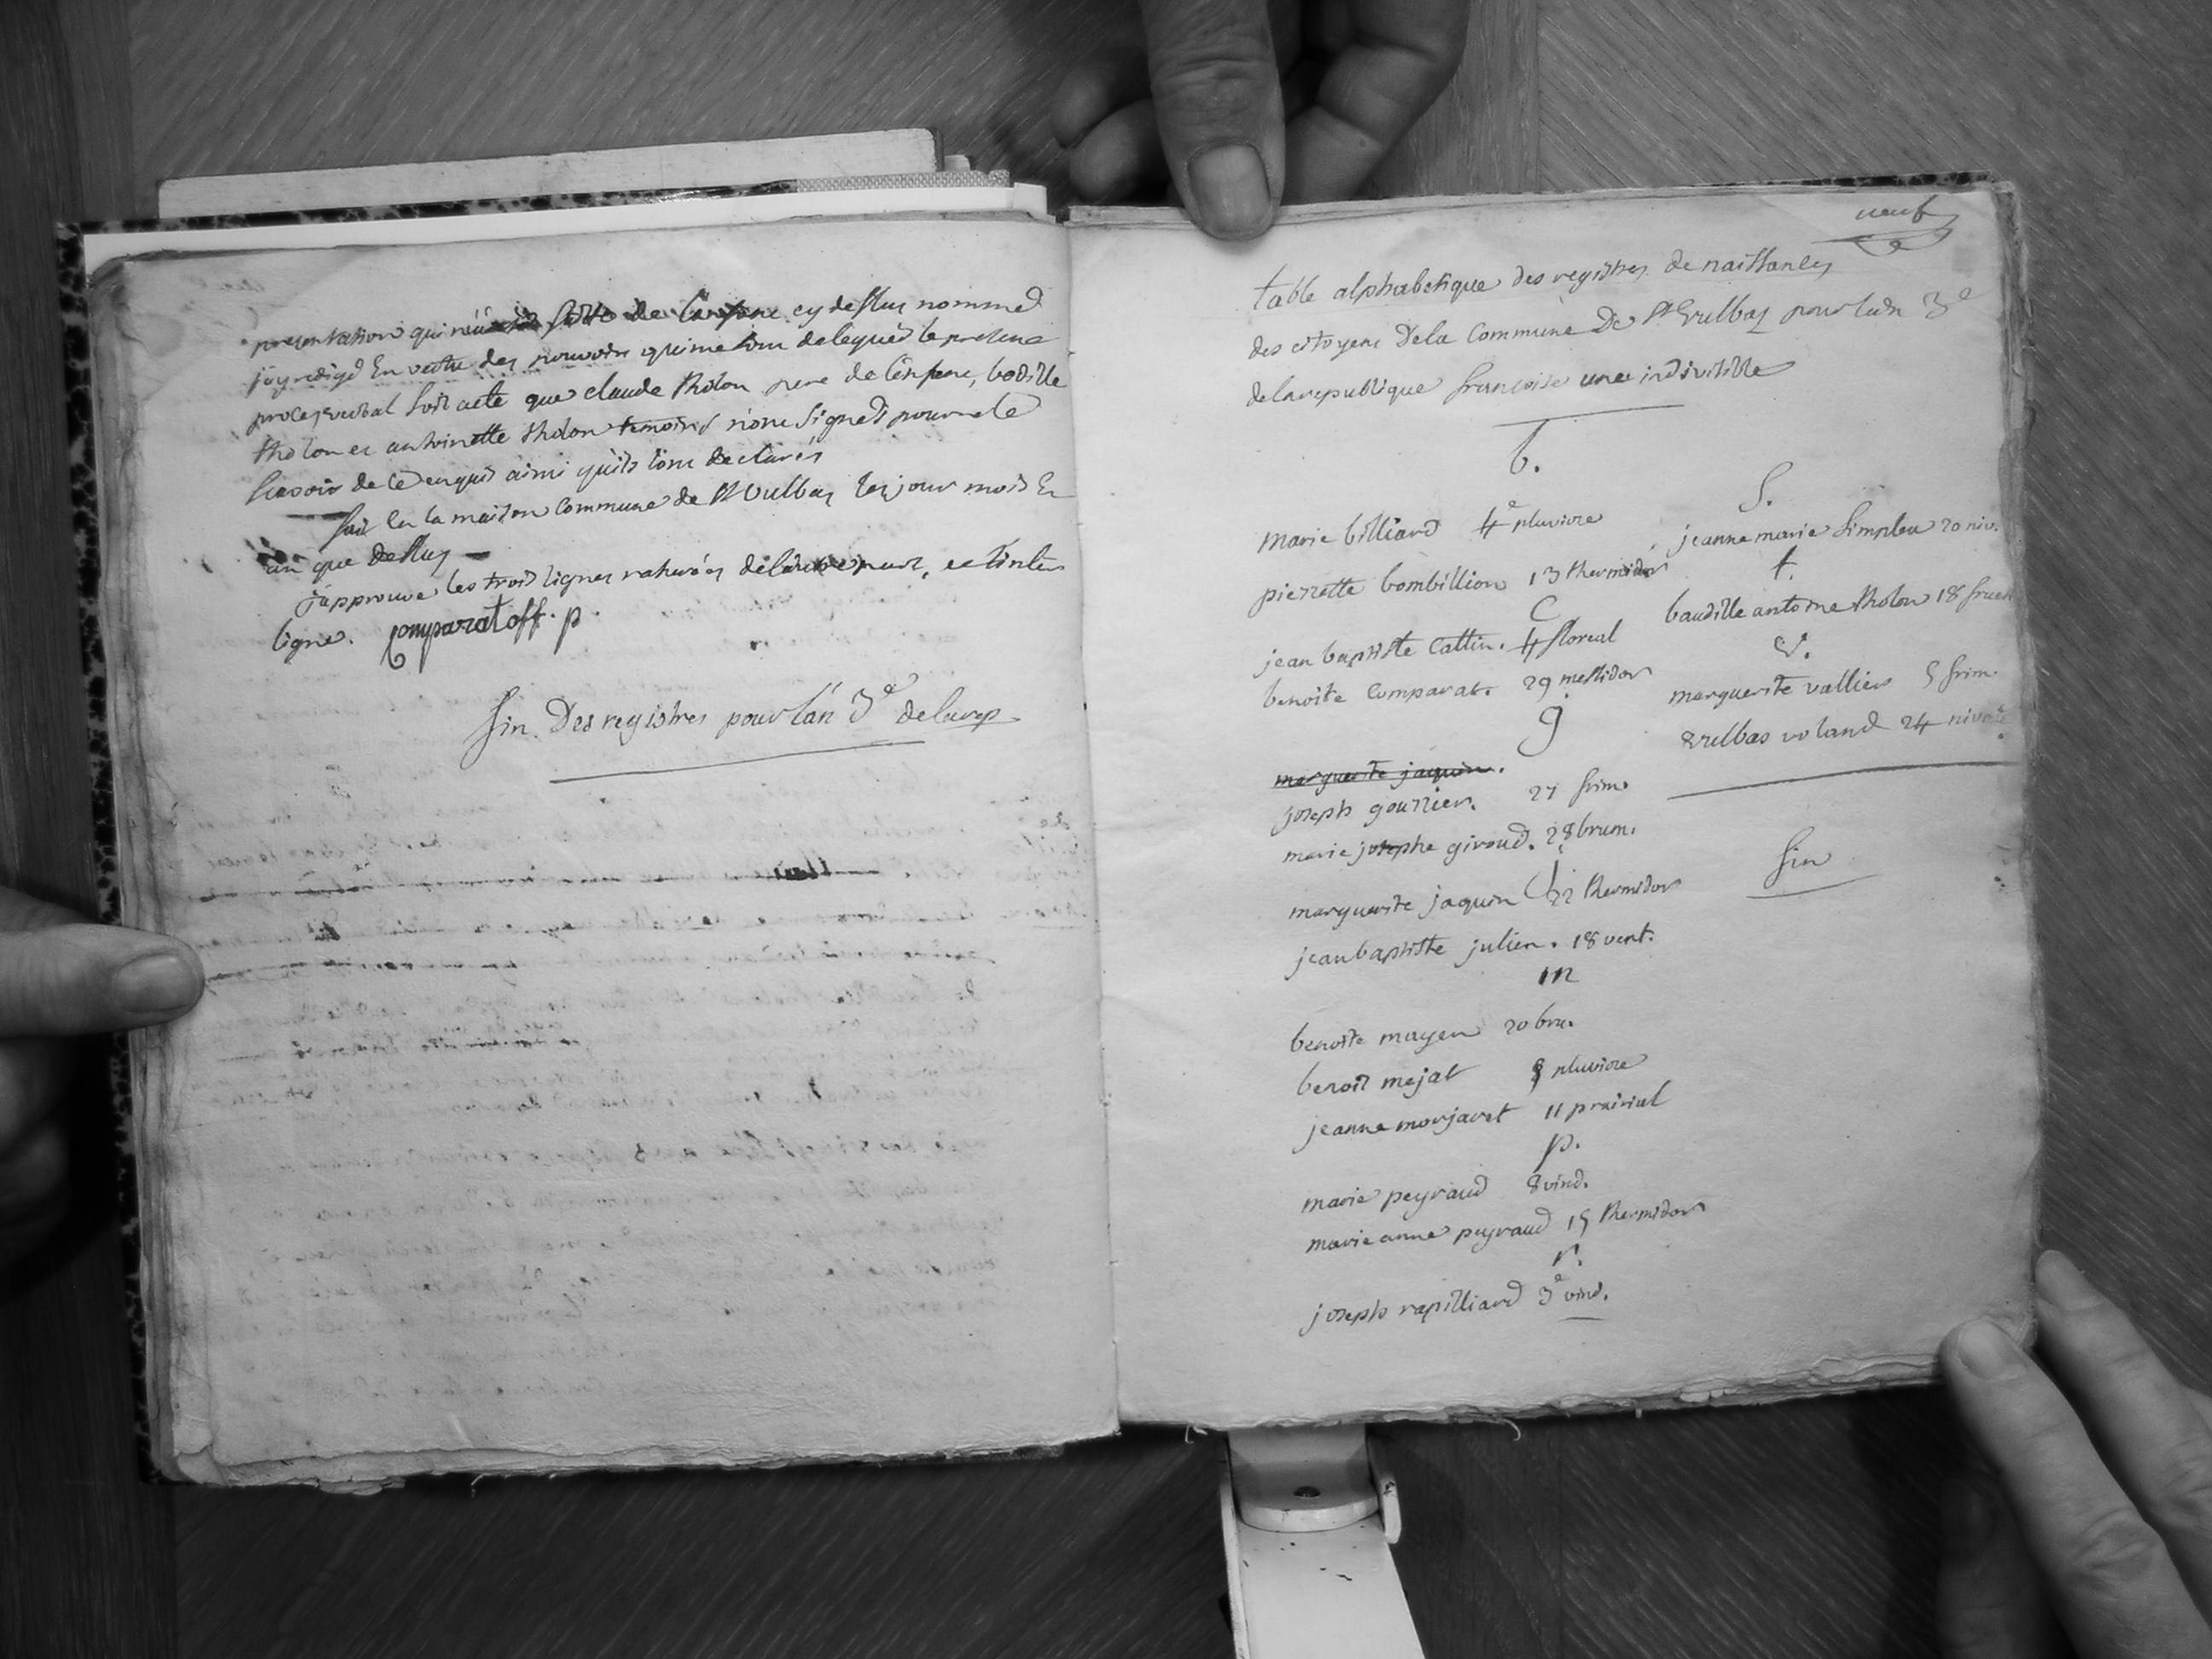 presentation qui m'a été faitte de l'enfant cy dessus nommé
jay redigé En vertu des pouvoirs qui me sont delegués le present
proces verbal soit acte que claude tholon pere de l'enfant, bodille
tholon et antoinette tholon temoins n'ont signés pour ne le
scavoir de ce enquis ainsi quils l'ont declarés
fait En la maison Commune de St Vulbas les jour mois En
an que dessus
japprouve les trois lignes raturées
ligne. Comparat off. p.
fin. Des registres pour l'an 3e de la rep.
neuf
table alphabetique des registres de naissances
des citoyens De la Commune De St Vulbas pour lan 3e
de la republique francoise une indivisible
b.
marie billiard 4e pluviose
pierrette bombillion 13 thermidor
C
jean baptiste Cattin. 4 floreal
benoite Comparat. 29 messidor
g
marguerite jaquin.
joseph gourrier. 27 frim.
marie josephe giroud. 28 brum.
j
marguerite jaquin 22 thermidor
jean baptiste julien. 18 vent.
m
benoite mayen 20 bru.
benoit mejat 8 pluviose
jeanne morjaret 11 prairial
p.
marie peyraud 8 vind.
marie anne peyraud 15 thermidor
r.
joseph rapilliard 3e vind.
S.
jeanne marie Simplex 20 niv.
t.
baudille antoine tholon 18 fruct
v.
marguerite vallier 5 frim.
vulbas voland 24 nivose
fin